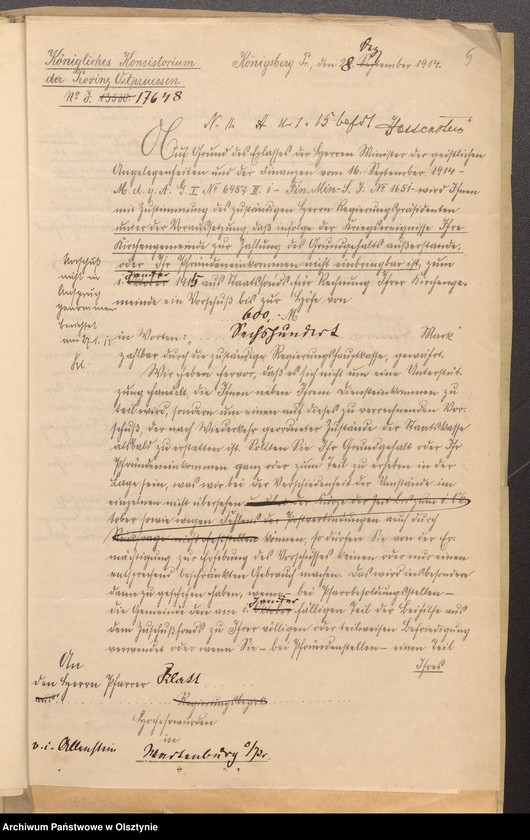 Königliches Konsistorium
der Provinz Ostpreussen
No J. 13500. 17648
Königsberg Pr., den 28. Dez. September 1914.
5
Auf Grund des Erlasses der Herren Minister der geistlichen
Angelegenheiten und der Finanzen vom 16. September 1914 –
M. d. g. A. G. I No 6457 II. i – Fin. Min. S. J. No 1651 – wird Ihnen
mit Zustimmung des zuständigen Herrn Regierungspräsidenten
unter der Voraussetzung, daß infolge der Kriegsereignisse Ihre
Kirchengemeinde zur Zahlung des Grundgehalts außerstande,
oder Ihr Pfründeneinkommen nicht einbringbar ist, zum
1. Januar 1915 aus Staatsfonds für Rechnung Ihrer Kirchenge-
meinde ein Vorschuß bis zur Höhe von
Vorschuß
nicht in
Anspruch
genommen
berichtet
600,- M
in Worten: Sechshundert Mark
zahlbar durch die zuständige Regierungshauptkasse, gewährt.
Wir heben hervor, daß es sich nicht um eine Unterstüt-
zung handelt die Ihnen neben Ihrem Diensteinkommen zu
teil wird, sondern um einen auf dieses zu verrechnenden Vor-
schuß, der nach Wiederkehr geordneter Zustände der Staatskasse
alsbald zu erstatten ist. Sollten Sie Ihr Grundgehalt oder Ihr
Pfründeneinkommen ganz oder zum Teil zu erheben in der
Lage sein, was wir bei der Verschiedenheit der Umstände im
einzelnen nicht übersehen und bei der Kürze der Zeit bis zum 1. Ok-
tober sowie wegen Fehlens der Postverbindungen auch durch
können, so dürfen Sie von der Er-
mächtigung zur Erhebung des Vorschusses keinen oder nur einen
entsprechend beschränkten Gebrauch machen. Das wird insbesondere
dann zu geschehen haben, wenn – bei Pfarrbesoldungsstellen –
die Gemeinde den am 1. Januar fälligen Teil der Beihilfe aus
dem Zuschußfonds zu Ihrer völligen oder teilweisen Befriedigung
verwendet oder wenn Sie – bei Pfründenstellen – einen Teil
Ihres
An
den Herrn Pfarrer
Hochehrwürden
in
v. i. Allenstein
Wartenburg O/Pr.
Archiwum Państwowe w Olsztynie